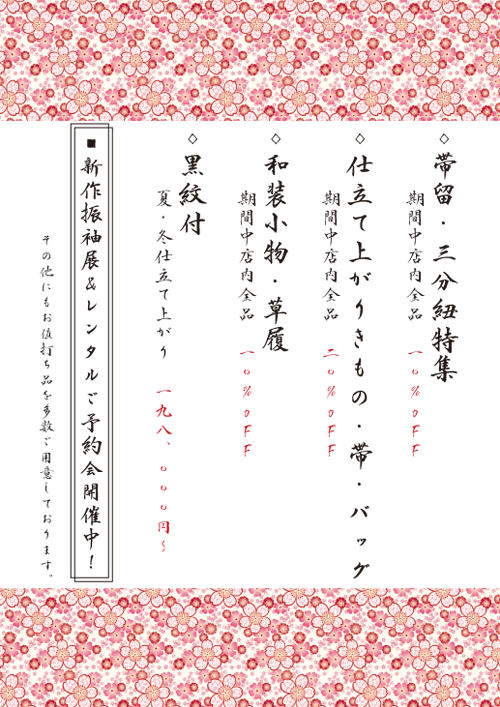 ◇帯留・三分紐特集
期間中店内全品 一〇％OFF
◇仕立て上がりきもの・帯・バッグ
期間中店内全品 二〇％OFF
◇和装小物・草履
期間中店内全品 一〇％OFF
◇黒紋付
夏・冬仕立て上がり 一九八、〇〇〇円～
■新作振袖展&レンタルご予約会開催中！
その他にもお値打ち品を多数ご用意しております。